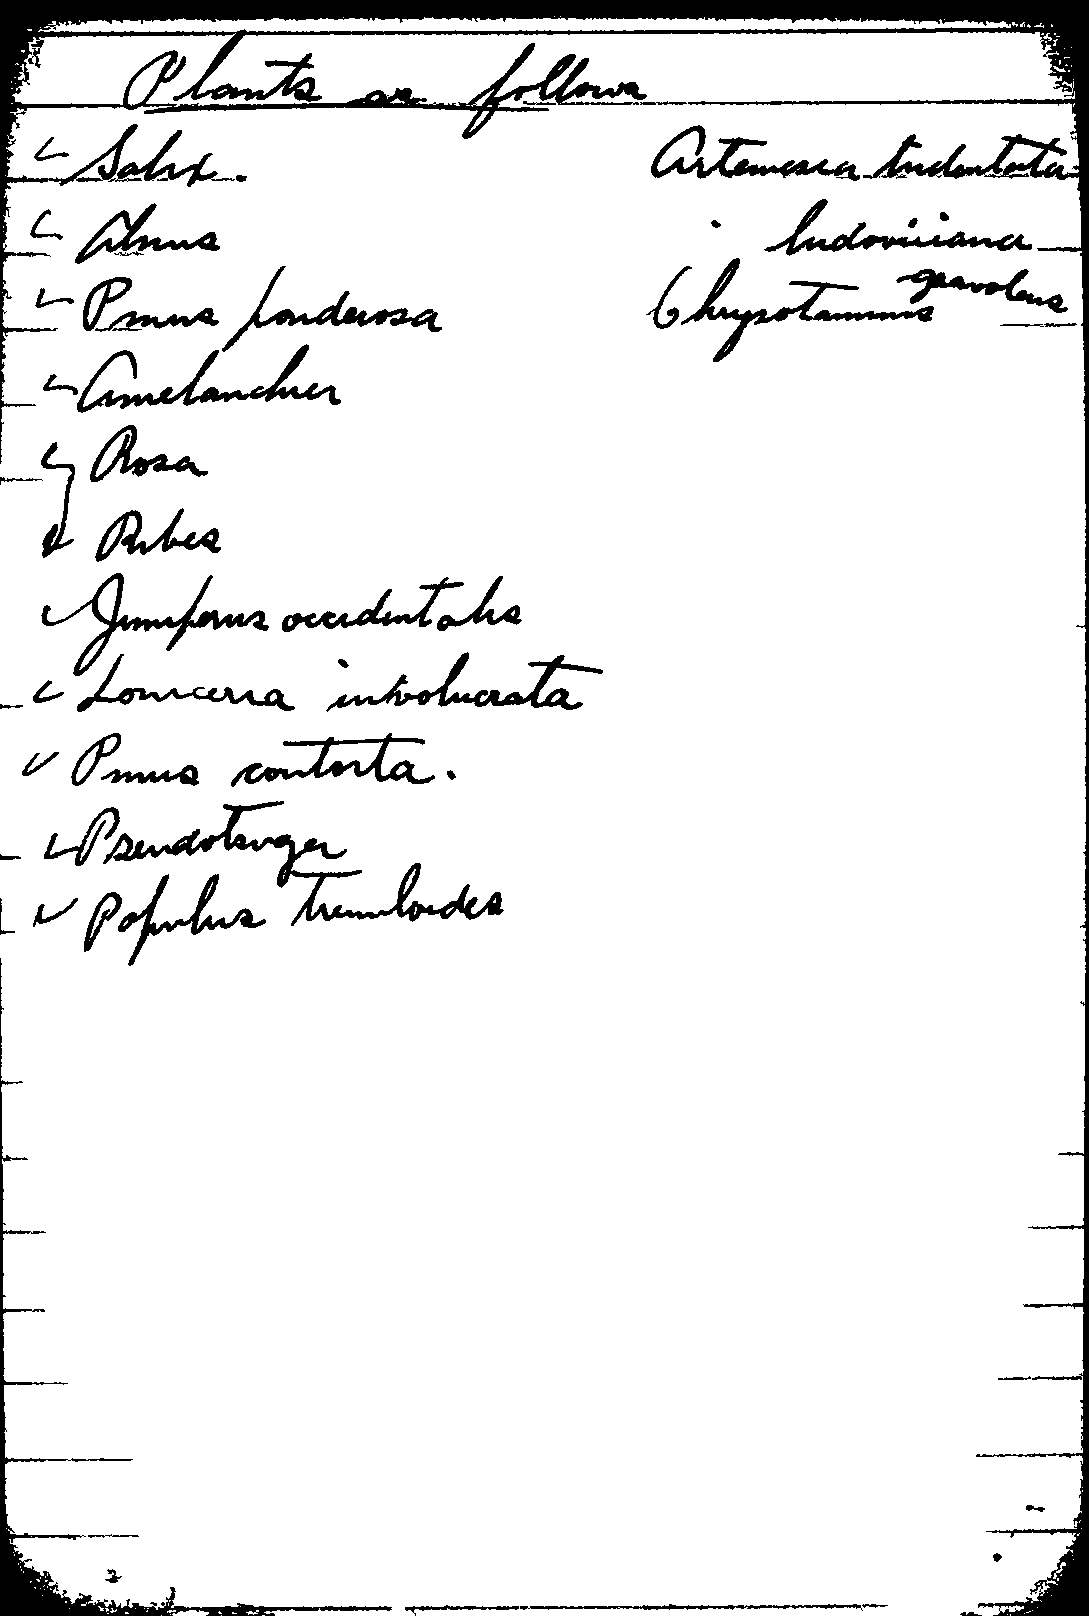 Plants as follows
Salix.
Alnus
Pinus ponderosa
Amelanchier
Rosa
Ribes
Juniperus occidentalis
Lonicerra involucrata
Pinus contorta.
Pseudotsuga
Populus tremloides
Artemesia tridentata
ludoviciana
Chrysotamnus graveolens